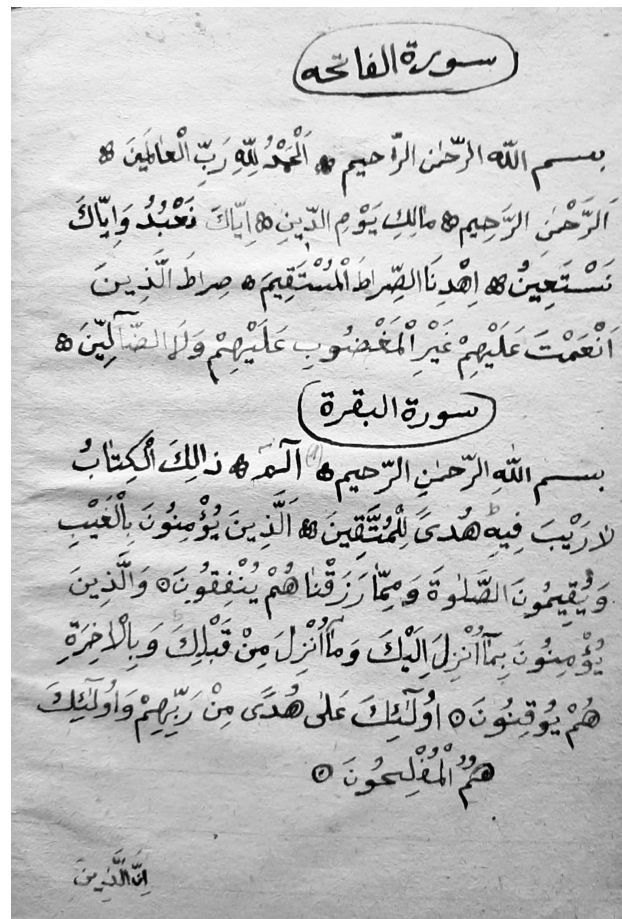 سورة الفاتحه
بسم الله الرحمٰن الرحيم ۞ اَلْحَمْدُ لِلّٰهِ رَبِّ الْعَالَمِينَ ۞
اَلرَّحْمٰنِ الرَّحِيمِ ۞ مَالِكِ يَوْمِ الدِّينِ ۞ اِيَّاكَ نَعْبُدُ وَاِيَّاكَ
نَسْتَعِينُ ۞ اِهْدِنَا الصِّرَاطَ الْمُسْتَقِيمَ ۞ صِرَاطَ الَّذِينَ
اَنْعَمْتَ عَلَيْهِمْ غَيْرِ الْمَغْضُوبِ عَلَيْهِمْ وَلَا الضَّآلِّينَ ۞
سورة البقرة
بسم اللهِ الرّحمٰنِ الرّحيم ۞ الٓمٓ ۞ ذالِكَ الْكِتَابُ
لَا رَيْبَ فِيهِ هُدىً لِلْمُتَّقِينَ ۞ اَلَّذِينَ يُؤْمِنُونَ بِالْغَيْبِ
وَيُقِيمُونَ الصَّلٰوةَ وَمِمَّا رَزَقْنَا هُمْ يُنْفِقُونَ ۞ وَالَّذِينَ
يُؤْمِنُونَ بِمَآ اُنْزِلَ اِلَيْكَ وَمَآ اُنْزِلَ مِنْ قَبْلِكَ وَبِالْاخِرَةِ
هُمْ يُوقِنُونَ ۞ اُولٰٓئِكَ عَلٰى هُدًى مِنْ رَبِّهِمْ وَاُولٰٓئِكَ
هُمُ الْمُفْلِحُونَ ۞
اِنَّ الَّذِينَ